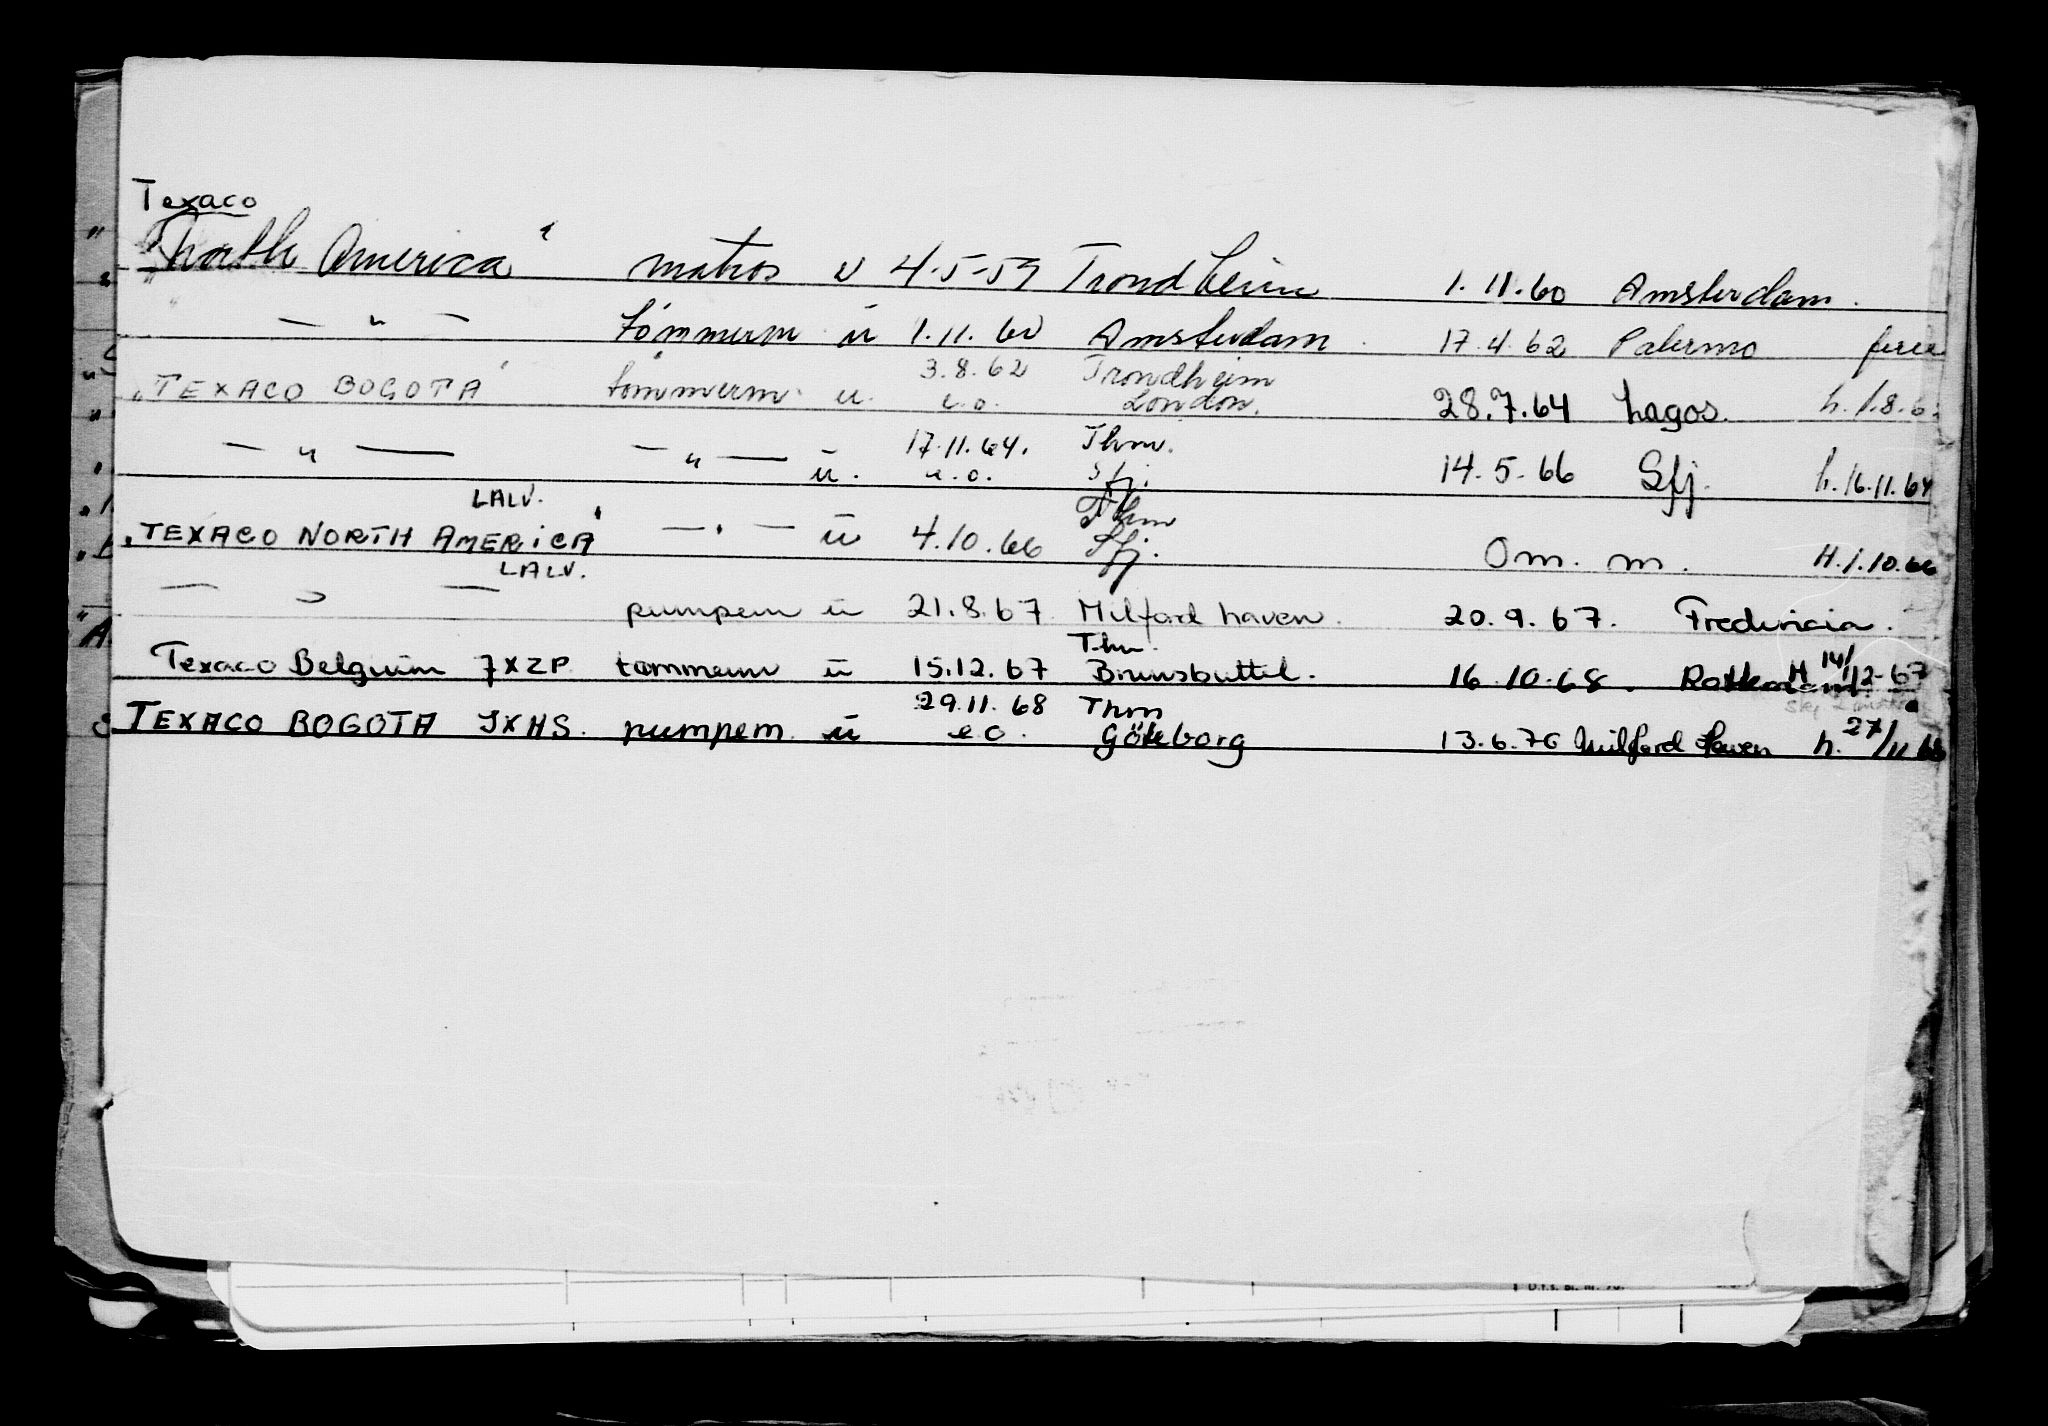 Texaco
"North America" matros u 4-5-59 Trondheim 1.11.60 Amsterdam.
— " — tømmerm u 1.11.60 Amsterdam. 17.4.62 Palermo ferie
3.8.62 Trondheim
"TEXACO BOGOTA" tømmerm. u. e.o. London. 28.7.64 Lagos. h. 1.8.6
17.11.64. Thm.
— " — — " — u. e.o. Sfj. 14.5.66 Sfj. h. 16.11.64
LALV. Thm
"TEXACO NORTH AMERICA" — " — u 4.10.66 Sfj. Om. m. H.1.10.66
LALV.
— " — pumpem u 21.8.67 Milford haven. 20.9.67. Fredericia.
Thm. 14/
Texaco Belgium JXZP tømmerm u 15.12.67 Brunsbuttel. 16.10.68. H 12-67
29.11.68 Thm
TEXACO BOGOTA JXHS. pumpem. u e.o. Göteborg 13.6.70 Milford Haven h. 27/11 68